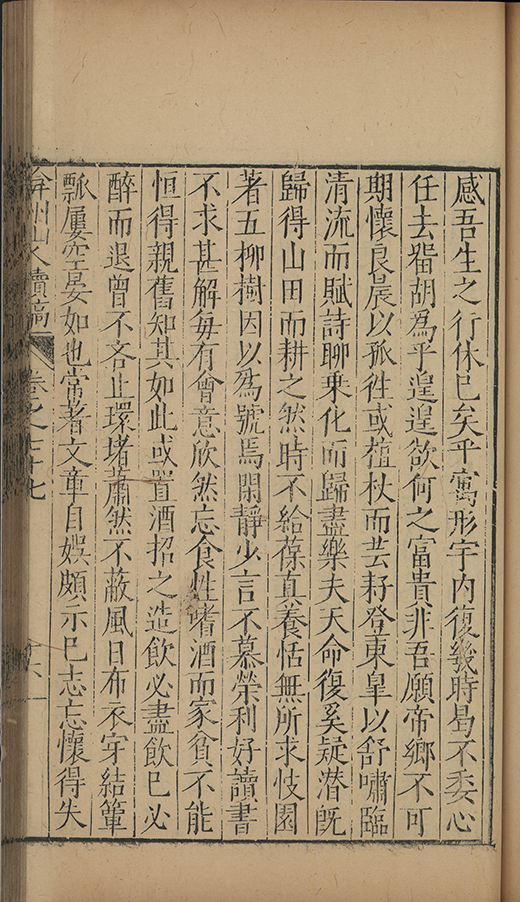 感吾生之行休已矣乎寓形宇内復幾時曷不委心
任去畱胡為乎遑遑欲何之富貴非吾願帝鄉不可
期懷良晨以孤徃或植杖而芸耔登東皐以舒嘯臨
清流而賦詩聊乗化而歸盡樂夫天命復奚疑潛既
歸得山田而耕之然時不給葆真養恬無所求忮園
著五柳樹因以為號焉閑靜少言不慕榮利好讀書
不求甚解毎有會意欣然忘食性嗜酒而家貧不能
恒得親舊知其如此或置酒招之造飲必盡飲已必
醉而退曾不吝止環堵蕭然不蔽風日布衣穿結簞
瓢屢空晏如也常著文章自娯頗示已志忘懷得失
弇州山人續稿 卷之 十七